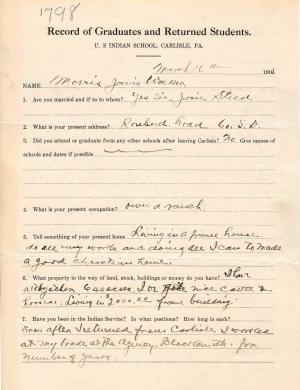 1798
Record of Graduates and Returned Students.
U. S INDIAN SCHOOL, CARLISLE, PA.
March 16 1911
NAME Morris Janis Walker
1. Are you married and if so to whom? Yes Sir. Josie Steed
2. What is your present address? Rosebud Tward Co. S.D.
3. Did you attend or graduate from any other schools after leaving Carlisle? No Give names of
schools and dates if possible.
4. What is your present occupation? own a ranch.
5. Tell something of your present home Living in a frame house
do all my works and doing all I can to made
a good christian home.
6. What property in the way of land, stock, buildings or money do you have? I have
nice cattle &
horses. Living in $2000.00 frame building
7. Have you been in the Indian Service? In what positions? How long in each?
Soon after I returned from Carlisle I worked
at my trade at the Agency. Blacksmith. for
number of years.